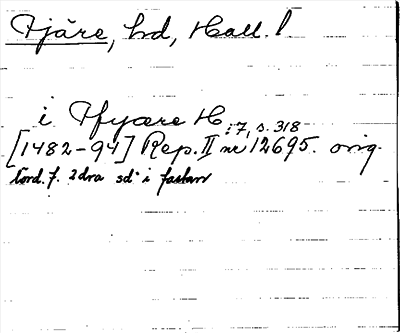 Fjäre, hd, Hall. l.
i Ffyære H
:7, s. 318
[1482-94] Rep. II nr 12695. orig.
tord. f. 2dra sd. i fastan